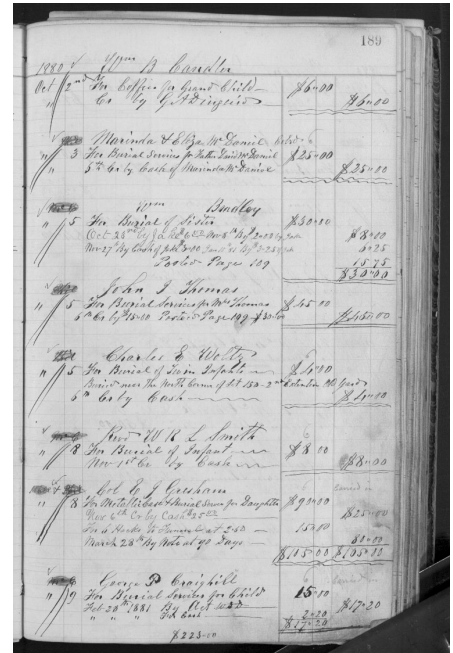 189
1880 Wm B. Candler
Oct 2nd For Coffin for Grand Child $6.00
" Cr by $6.00
Marinda & Eliza McDaniel
" 3 For Burial Services for Father David McDaniel $25.00
" 5th Cr by Cash of Marinda McDaniel $25.00
Wm Bradley
" 5 For Burial of Sister $30.00
Oct 23rd by $8.00
Nov 27 By Cash of 5.25
Posted Page 109 15.75
$30.00
John J Thomas
" 5 For Burial Services for Mrs Thomas $45.00
" 6th Cr by $15.00 Posted Page 199 $30.00 $45.00
Charles E Woltz
" 5 For Burial of Twin Infants $4.00
Buried near the North Corner of Lot 150 2nd Extention Old Yard
" 6th Cr by Cash $4.00
Revd W R L Smith
" 8 For Burial of Infant $8.00
Nov 1st Cr by Cash $8.00
Col E J Gresham
" 8 For Metallic Case & Burial Serves for Daughter $90.00
Nov 6th Cr by Cash $25.00 $25.00
For 6 Hacks to Funeral at 2.50 15.00
March 28th By Note at 90 Days 80.00
$105.00 $105.00
George P. Craighill
" 9 For Burial Services for Child 15.00
Feb 20th 1881 By Act $17.20
" " " For 2.20
$17.20
$223.00